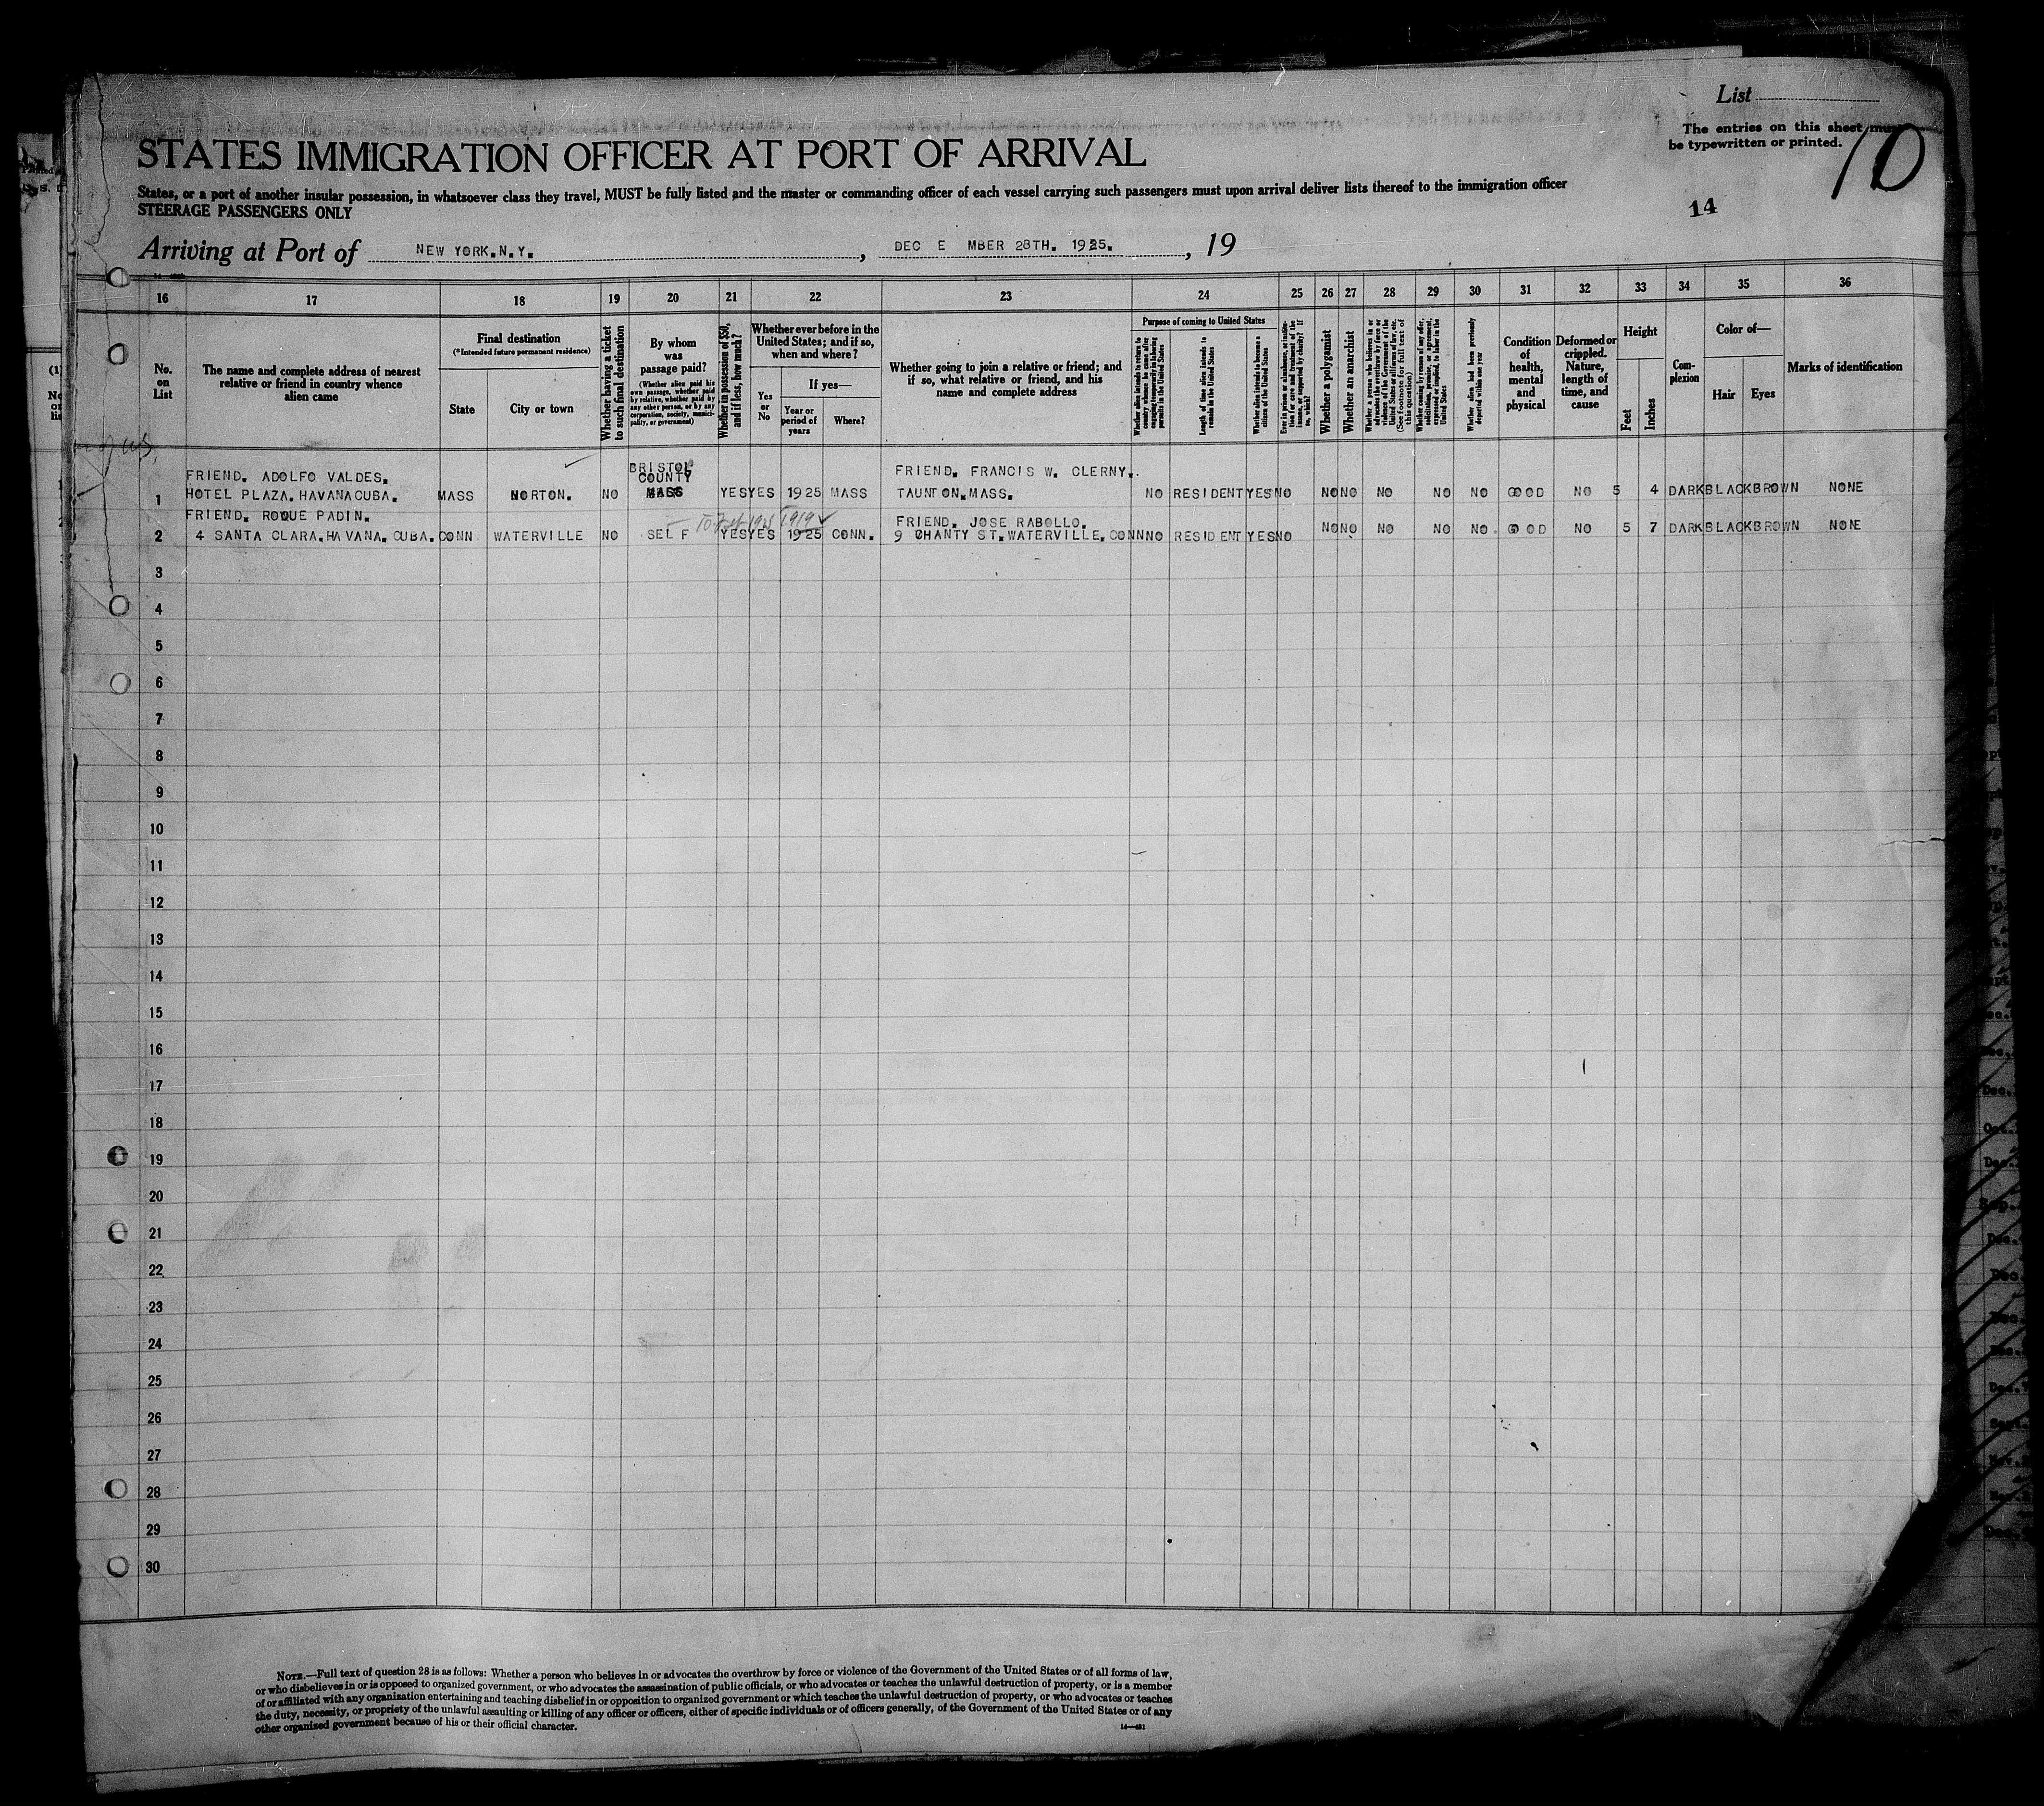 List
The entries on this sheet must
be typewritten or printed.
10
14
STATES IMMIGRATION OFFICER AT PORT OF ARRIVAL
States, or a port of another insular possession, in whatsoever class they travel, MUST be fully listed and the master or commanding officer of each vessel carrying such passengers must upon arrival deliver lists thereof to the immigration officer
STEERAGE PASSENGERS ONLY
Arriving at Port of NEW YORK.N.Y. , DEC E MBER 28TH. 1925. , 19
16 17 18 19 20 21 22 23 24 25 26 27 28 29 30 31 32 33 34 35 36
No.
on
List
The name and complete address of nearest
relative or friend in country whence
alien came
Final destination
(*Intended future permanent residence)
State
City or town
Whether having a ticket
to such final destination
By whom
was
passage paid?
(Whether alien paid his
own passage, whether paid
by relative, whether paid by
any other person, or by any
corporation, society, munici-
pality, or government)
Whether in possession of $50,
and if less, how much?
Whether ever before in the
United States; and if so,
when and where?
Yes
or
No
If yes—
Year or
period of
years
Where?
Whether going to join a relative or friend; and
if so, what relative or friend, and his
name and complete address
Purpose of coming to United States
Whether alien intends to return to
country whence he came after
engaging temporarily in laboring
pursuits in the United States
Length of time alien intends to
remain in the United States
Whether alien intends to become a
citizen of the United States
Ever in prison or almshouse, or institu-
tion for care and treatment of the
insane, or supported by charity? If
so, which?
Whether a polygamist
Whether an anarchist
Whether a person who believes in or
advocates the overthrow by force or
violence of the Government of the
United States or all forms of law, etc.
(See footnote for full text of
this question)
Whether coming by reason of any offer,
solicitation, promise, or agreement,
expressed or implied, to labor in the
United States
Whether alien had been previously
deported within one year
Condition
of
health,
mental
and
physical
Deformed or
crippled.
Nature,
length of
time, and
cause
Height
Feet
Inches
Com-
plexion
Color of—
Hair
Eyes
Marks of identification
FRIEND. ADOLFO VALDES. BRISTOL COUNTY FRIEND. FRANCIS W. CLERNY.
1 HOTEL PLAZA.HAVANACUBA. MASS NORTON. NO MASS YES YES 1925 MASS TAUNTON.MASS. NO RESIDENT YES NO NO NO NO NO NO GOOD NO 5 4 DARK BLACK BROWN NONE
FRIEND. ROQUE PADIN. 1919 FRIEND. JOSE RABOLLO.
2 4 SANTA CLARA.HAVANA.CUBA. CONN WATERVILLE NO SELF YES YES 1925 CONN. 9 CHANTY ST.WATERVILLE.CONN NO RESIDENT YES NO NO NO NO NO NO GOOD NO 5 7 DARK BLACK BROWN NONE
3
4
5
6
7
8
9
10
11
12
13
14
15
16
17
18
19
20
21
22
23
24
25
26
27
28
29
30
NOTE.—Full text of question 28 is as follows: Whether a person who believes in or advocates the overthrow by force or violence of the Government of the United States or of all forms of law,
or who disbelieves in or is opposed to organized government, or who advocates the assassination of public officials, or who advocates or teaches the unlawful destruction of property, or is a member
of or affiliated with any organization entertaining and teaching disbelief in or opposition to organized government or which teaches the unlawful destruction of property, or who advocates or teaches
the duty, necessity, or propriety of the unlawful assaulting or killing of any officer or officers, either of specific individuals or of officers generally, of the Government of the United States or of any
other organized government because of his or their official character.